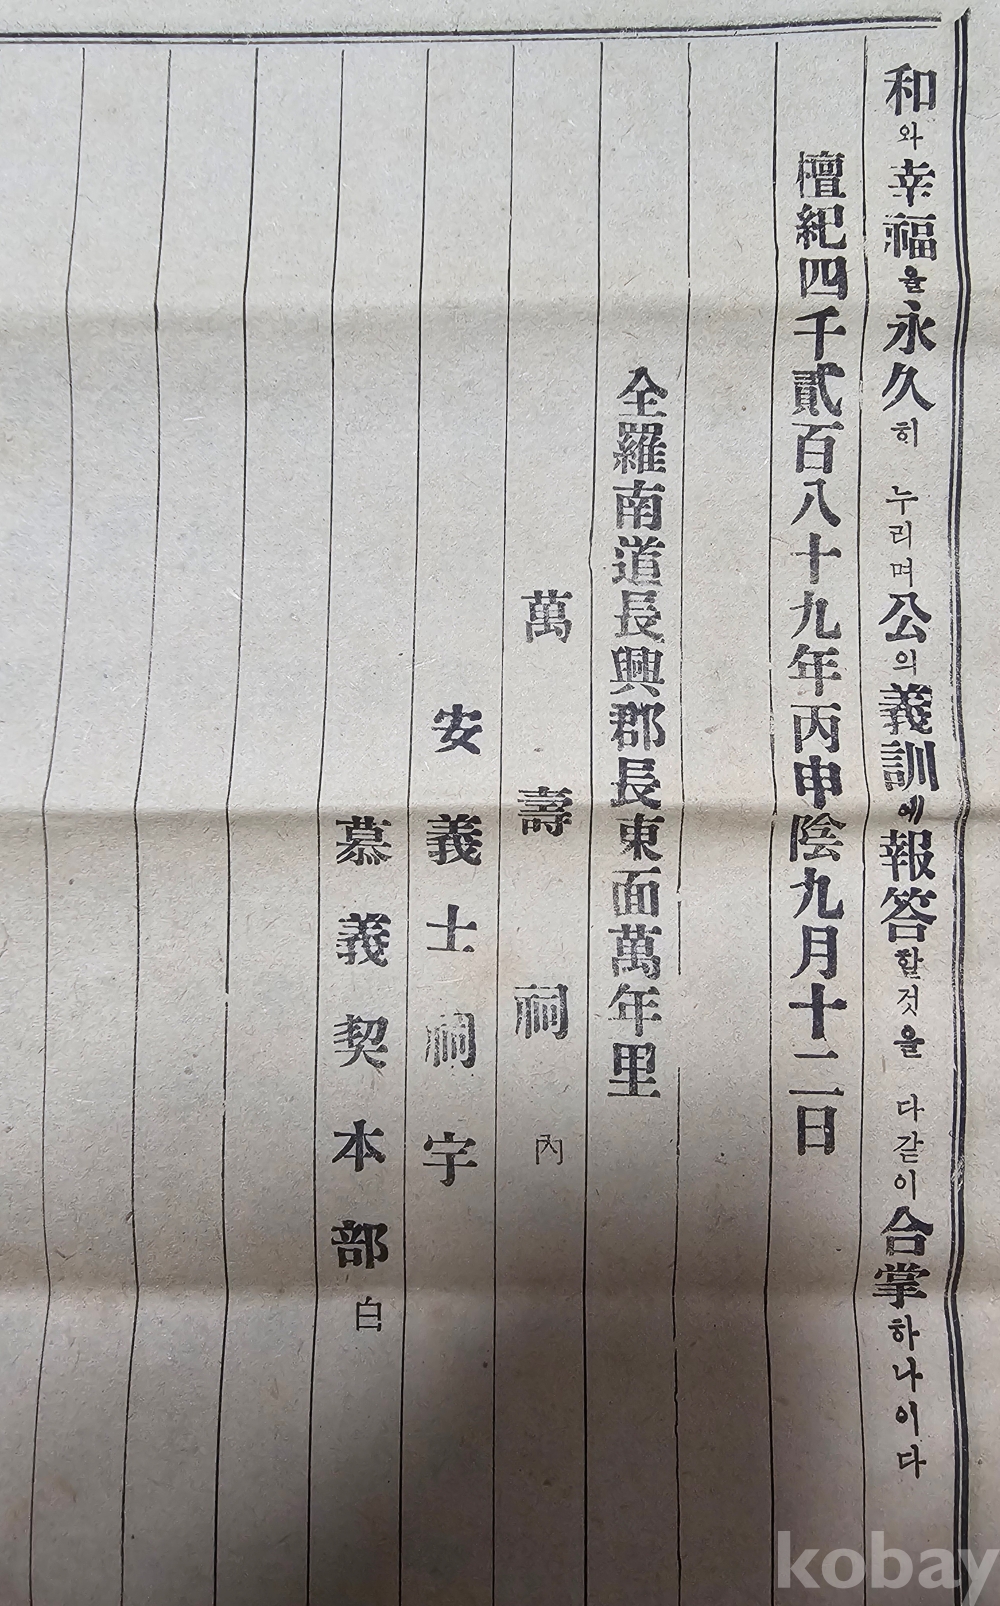 和와幸福을永久히 누리며公의義訓에報答할것을 다같이合掌하나이다
檀紀四千貳百八十九年丙申陰九月十二日
全羅南道長興郡長東面萬年里
萬壽祠內
安義士祠宇
慕義契本部白
kobay